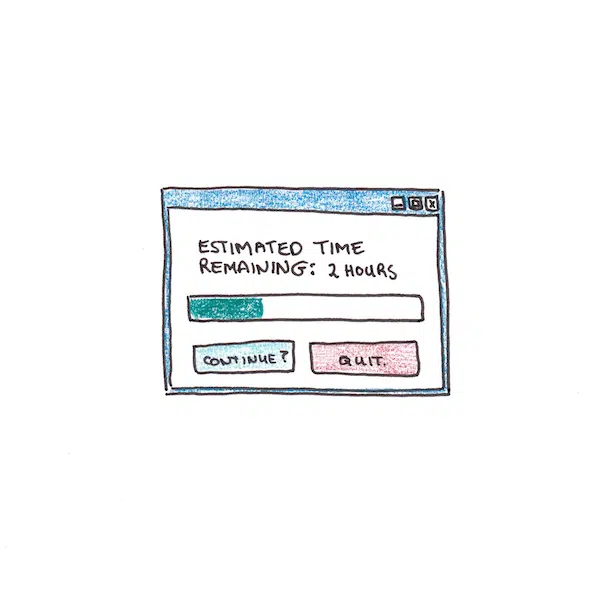 ESTIMATED TIME
REMAINING: 2 HOURS
CONTINUE?
QUIT.